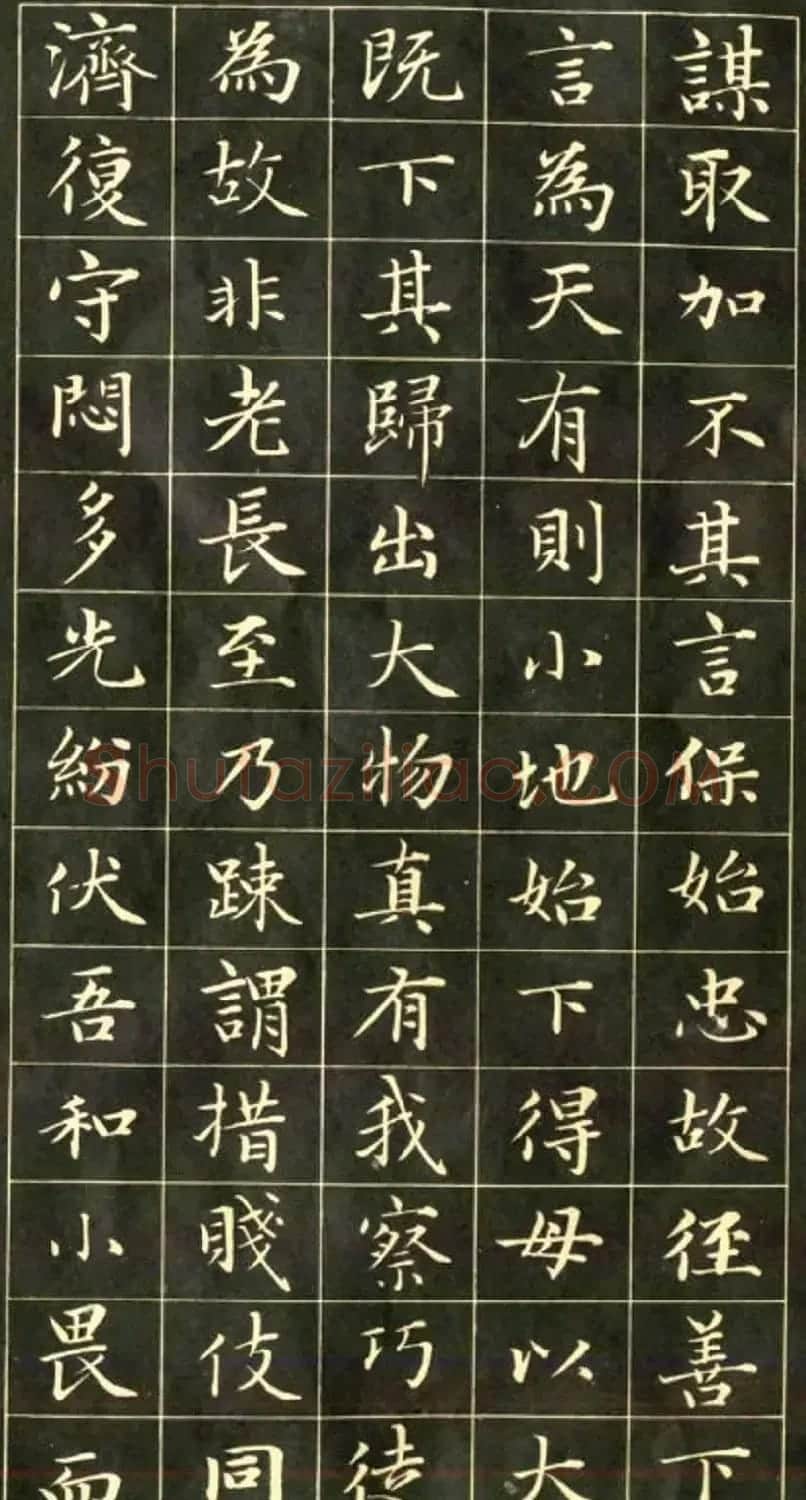 謀取加不其言保始忠故徑善下
言為天有則小地始下得母以大
既下其歸出大物真有我察巧徒
為故非老長至乃踈謂措賤伎同
濟復守悶多光紛伏吾和小畏而
Shufaziliao.COM